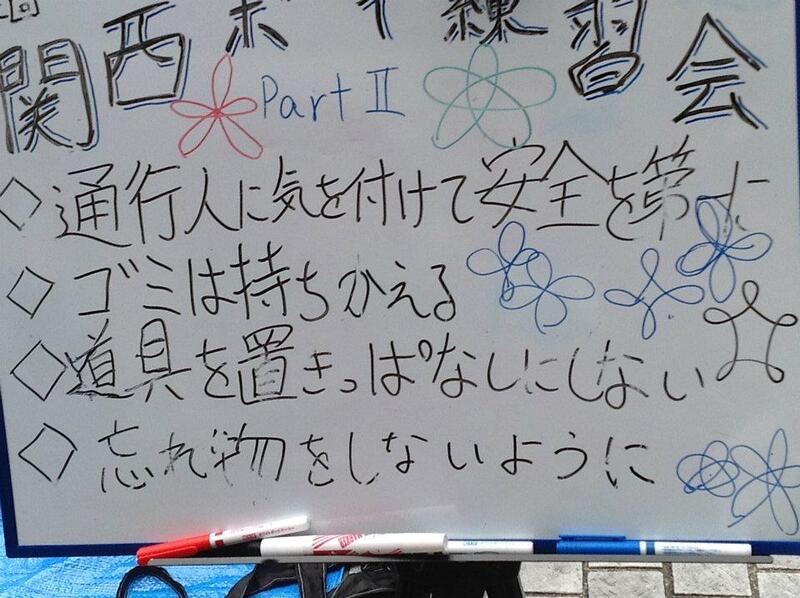 関西ポイ練習会
Part II
◇通行人に気を付けて安全を第一に
◇ゴミは持ちかえる
◇道具を置きっぱなしにしない
◇忘れ物をしないように